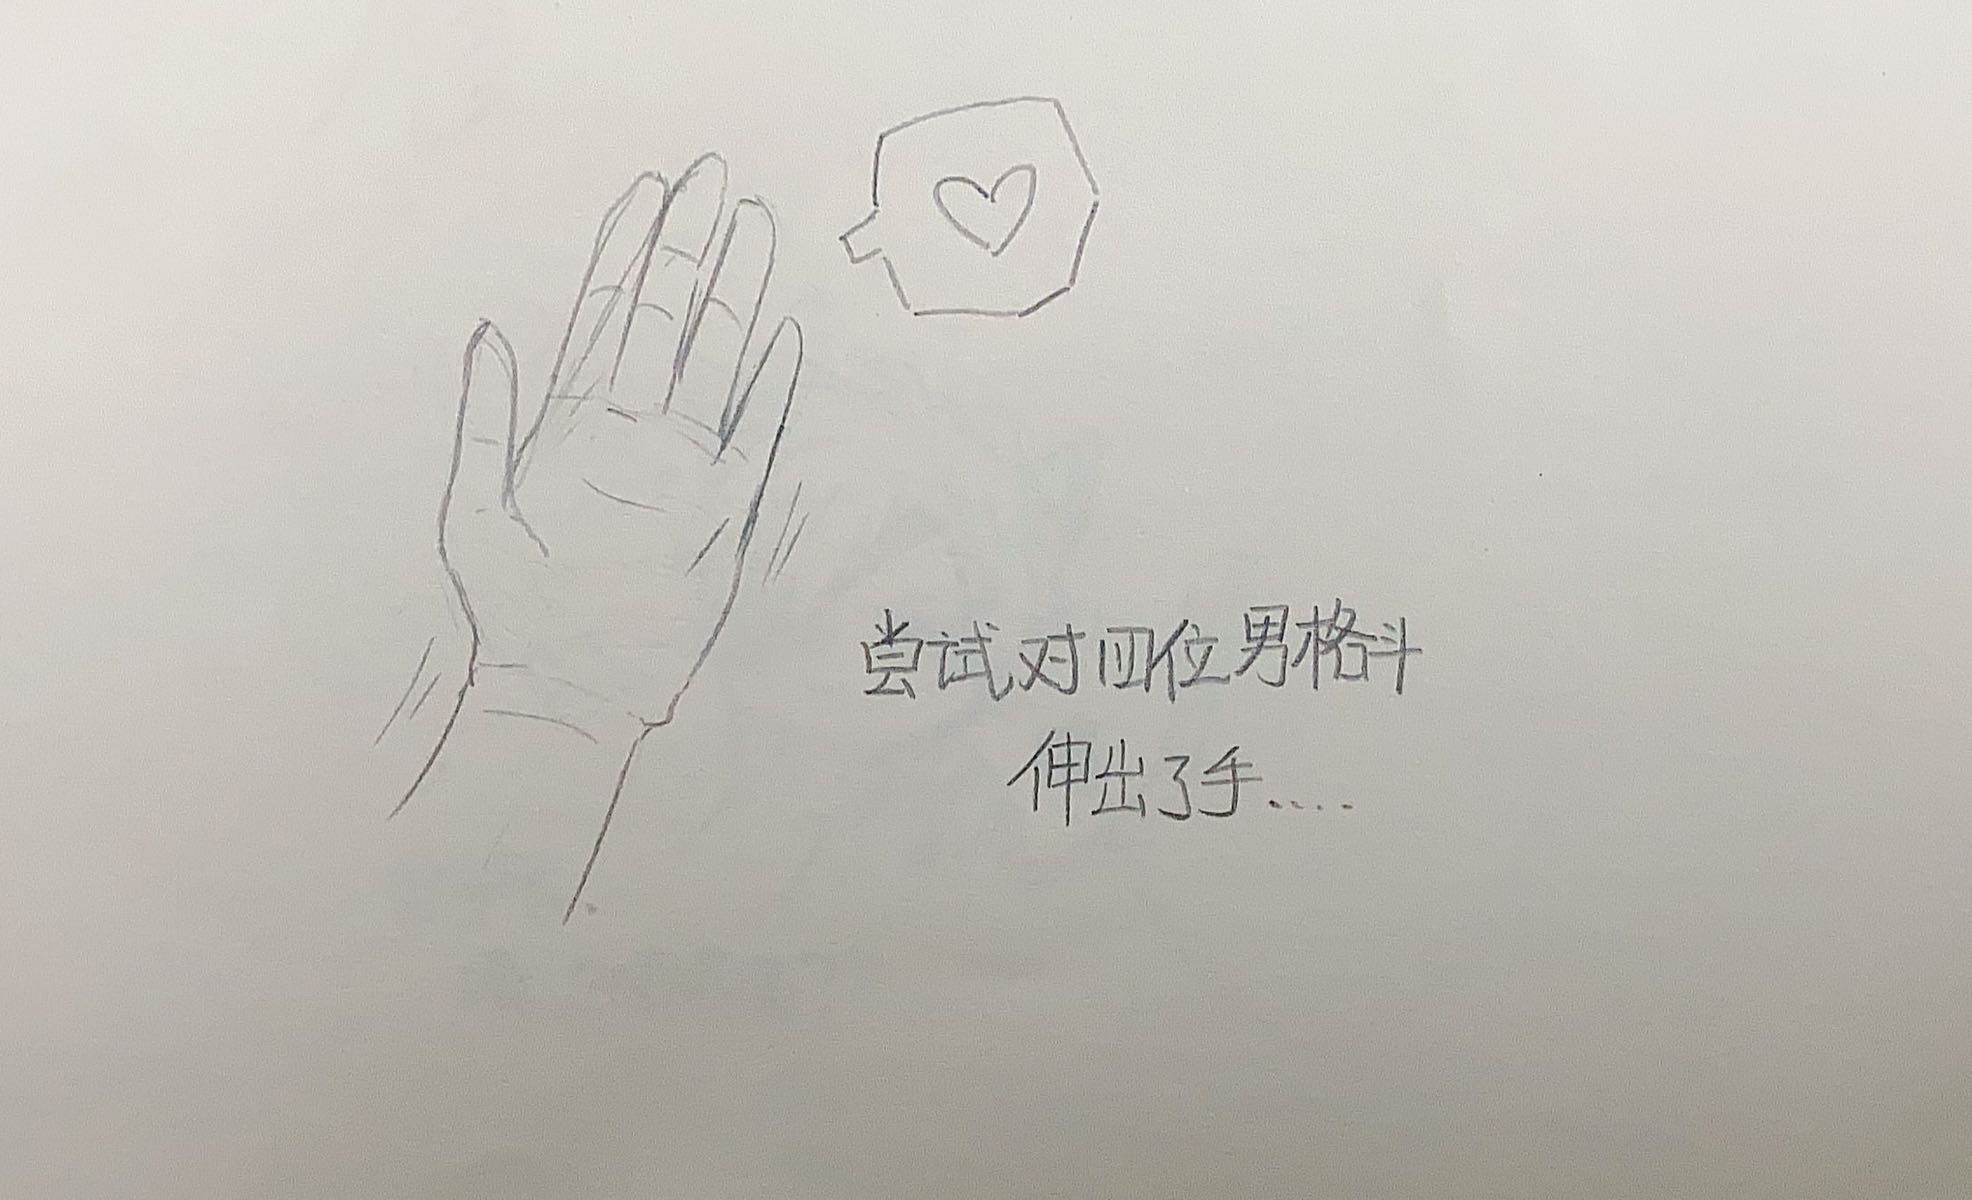 尝试对四位男格斗
伸出了手....